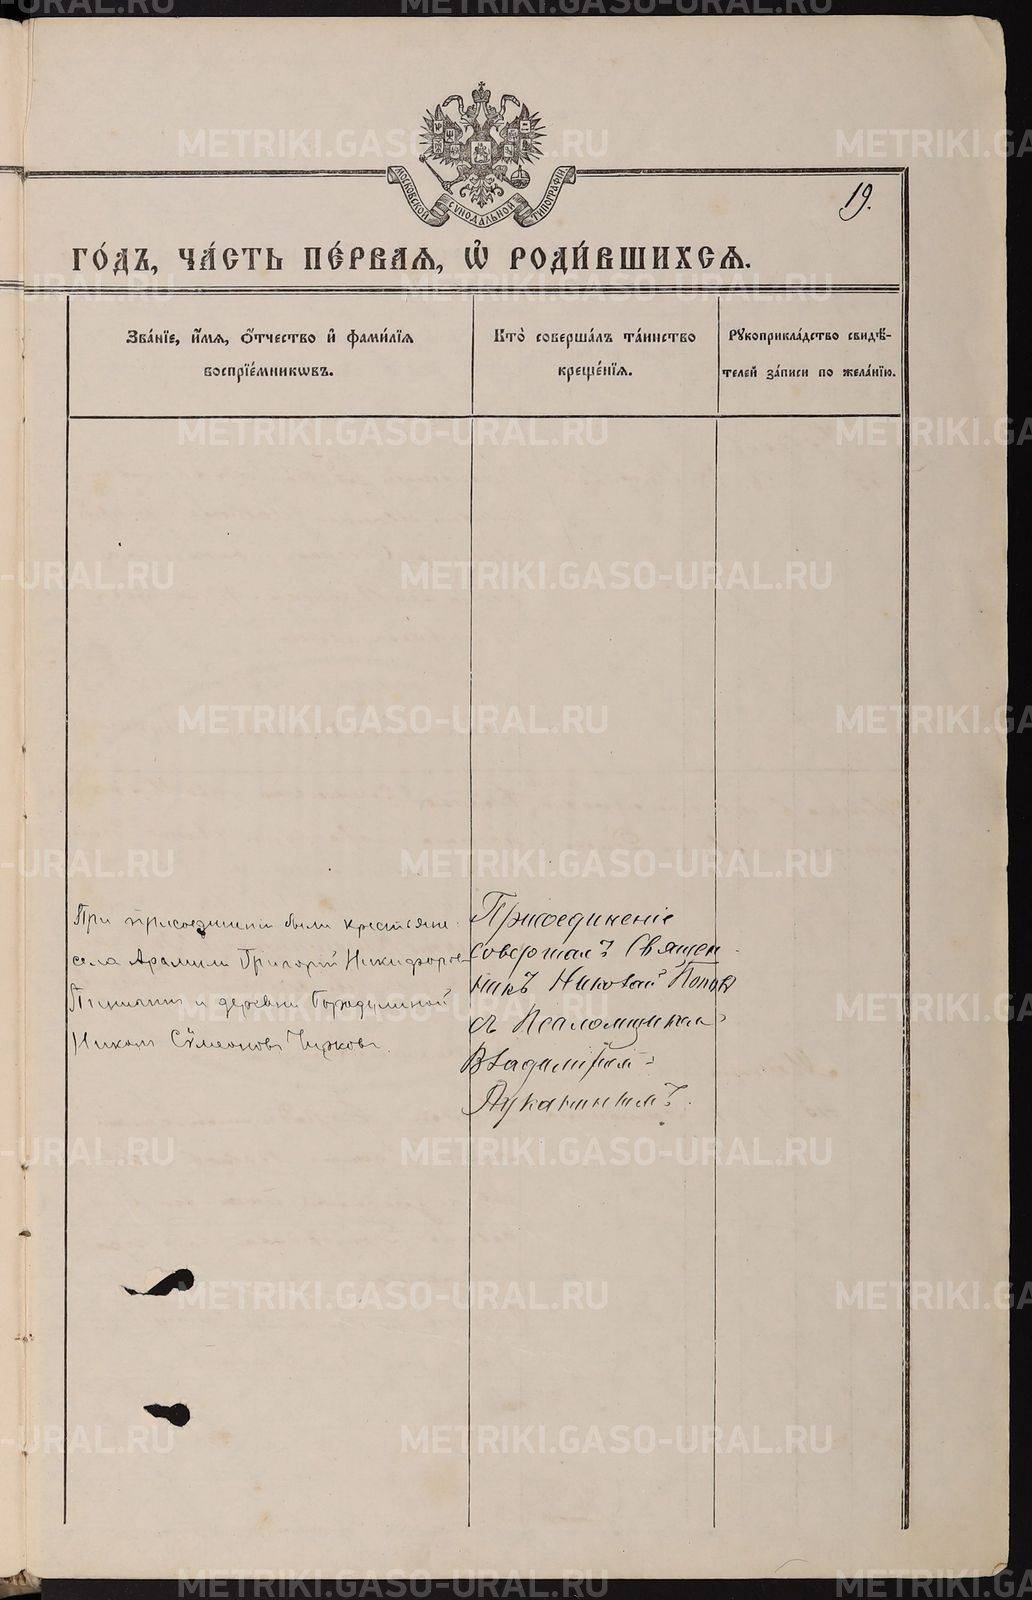 МОСКОВСКОЙ СѴНОДАЛЬНОЙ ТИПОГРАФІИ
19.
го́дъ, ча́сть пе́рваѧ, ѡ҆ роди́вшихсѧ.
Зва́нїе, и҆́мѧ, ѻ҆́тчество и҆ фами́лїѧ
воспрїе́мникѡвъ.
Кто̀ соверша́лъ та́инство
креще́нїѧ.
Рꙋкоприкла́дство свидѣ́-
телей за́писи по жела́нїю.
При присоединеніи были крестьяне
села Арамили Григорій Никифоров
и деревни Бородулиной
Сѵмеоновъ Чирковъ.
Присоединеніе
совершалъ Священ-
никъ Николай Попов
съ Псаломщикомъ
Владиміромъ
Лукانинымъ.
METRIKI.GASO-URAL.RU